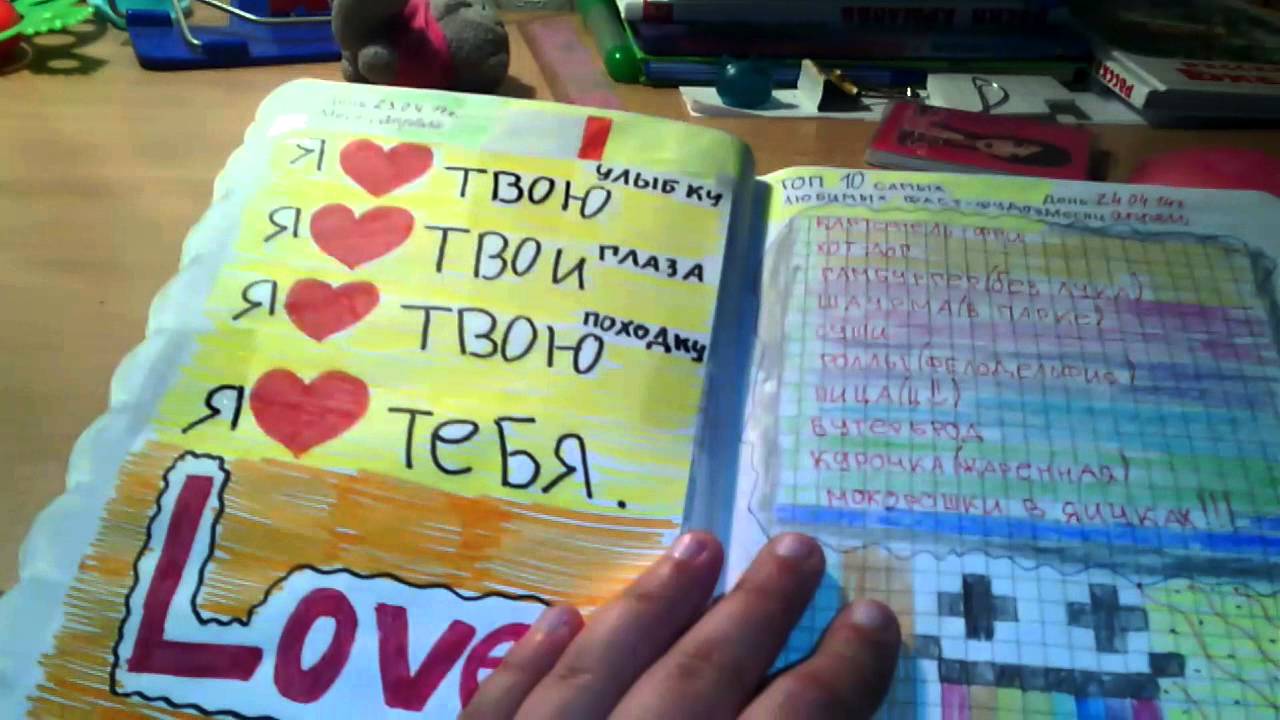 23.04.14г.
Я ТВОЮ УЛЫБКУ
Я ТВОИ ГЛАЗА
Я ТВОЮ ПОХОДКУ
Я ТЕБЯ.
LOVE
ТОП 10 САМЫХ
ЛЮБИМЫХ ФАСТ-ФУДОВ
ДЕНЬ 24.04.14г.
МЕСЯЦ АПРЕЛЬ
КАРТОФЕЛЬ ФРИ
ХОТ-ДОГ
ГАМБУРГЕР(БЕЗ ЛУКА)
ШАУРМА(В ПАРКЕ)
СУШИ
РОЛЛЫ(ФЕЛОДЕЛЬФИЯ)
ПИЦА(Ц!!)
БУТЕРБРОД
КУРОЧКА(ЖАРЕННАЯ)
МОКОРОШКИ В ЯИЧКАХ!!!